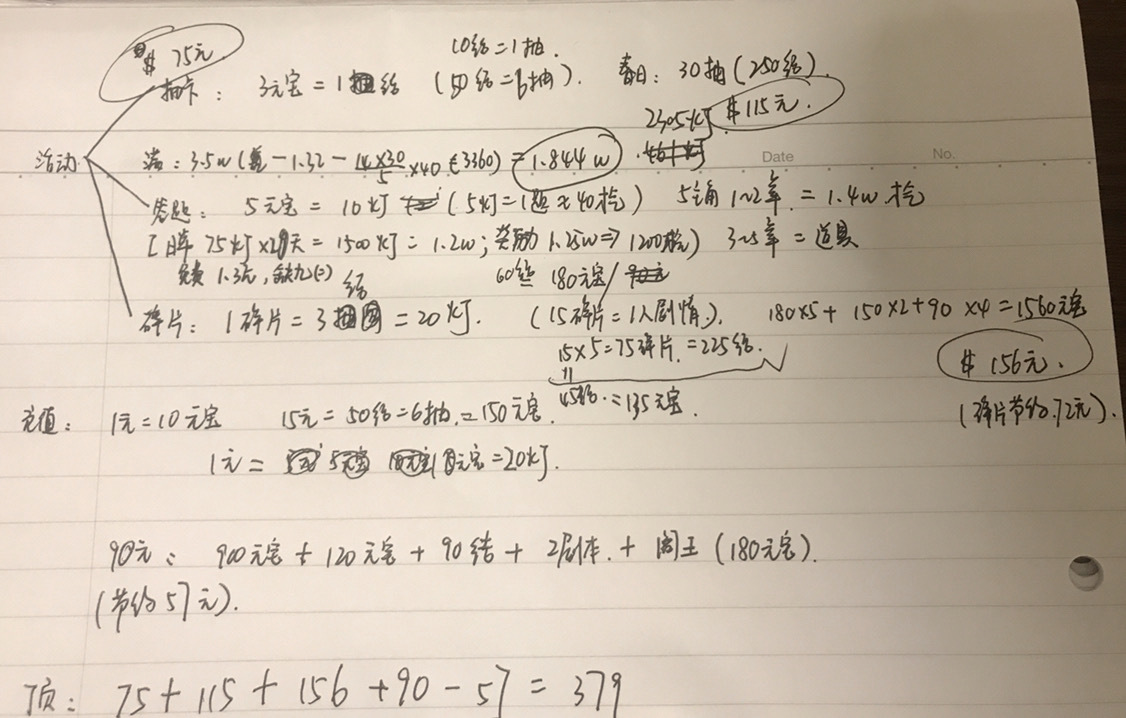 $ 75元
10结=1抽.
抽卡: 3元宝=1结 (50结=6抽). 春日: 30抽(250结)
2305灯 $115元.
活动
满: 3.5w ( -1.32 - 14×30/5 ×40 (3360) = 1.844w).
Date No.
答题: 5元宝 = 10灯 (5灯=1题≈40抢) 5主角 1~2章 = 1.4w 抢
[日 75灯×20天 = 1500灯 = 1.2w; 奖励 1.25w => 1200抢) 3~5章 = 道具
免费 1.3元, 缺九(=)
结
60结 180元宝/
碎片: 1碎片=3 =20灯. (15碎片=1人剧情). 180×5+150×2+90×4=1560元宝
15×5=75碎片.=225结.
$ 156元.
45结.=135元宝.
(碎片节约72元).
充值: 1元=10元宝 15元=50结=6抽.=150元宝.
1元= 元宝=20灯.
90元: 900元宝+120元宝+90结+2剧本.+阎王(180元宝).
(节约57元).
顶: 75+115+156+90-57=379